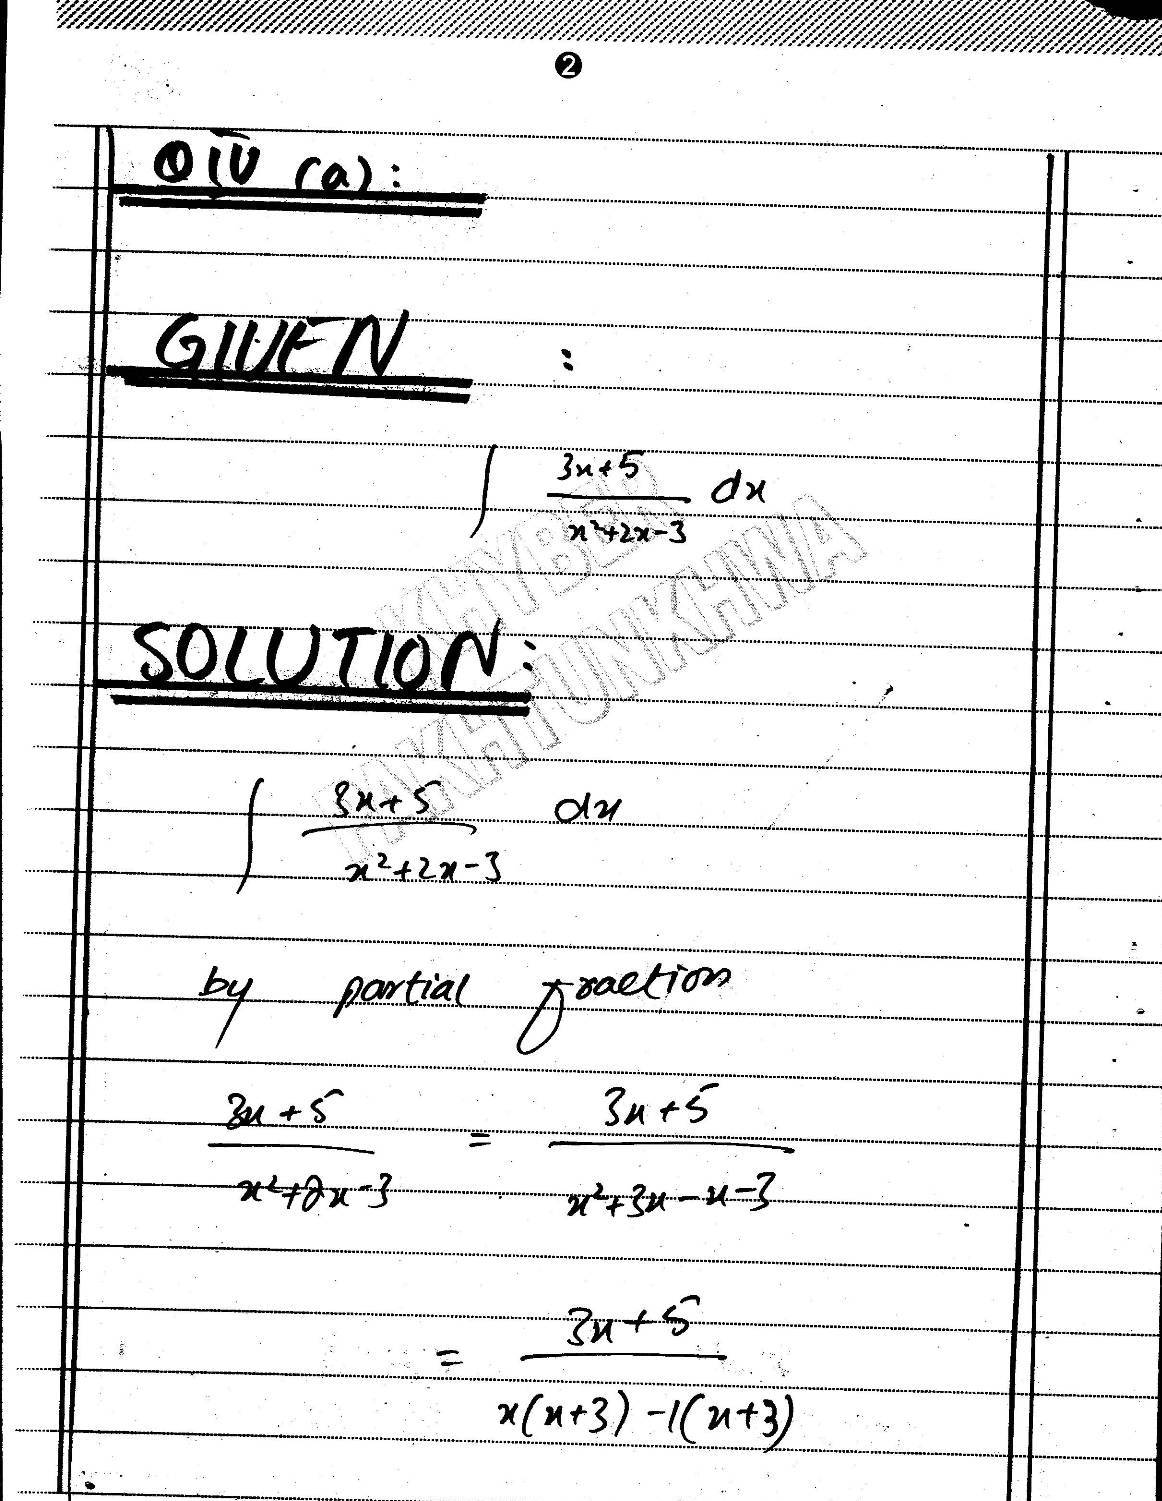 2
QIV (a):
GIVEN :
∫ 3x+5 / x²+2x-3 dx
KHYBER
PAKHTUNKHWA
SOLUTION:
∫ 3x+5 / x²+2x-3 dx
by partial fraction
3x+5 / x²+2x-3 = 3x+5 / x²+3x-x-3
= 3x+5 / x(x+3) -1(x+3)